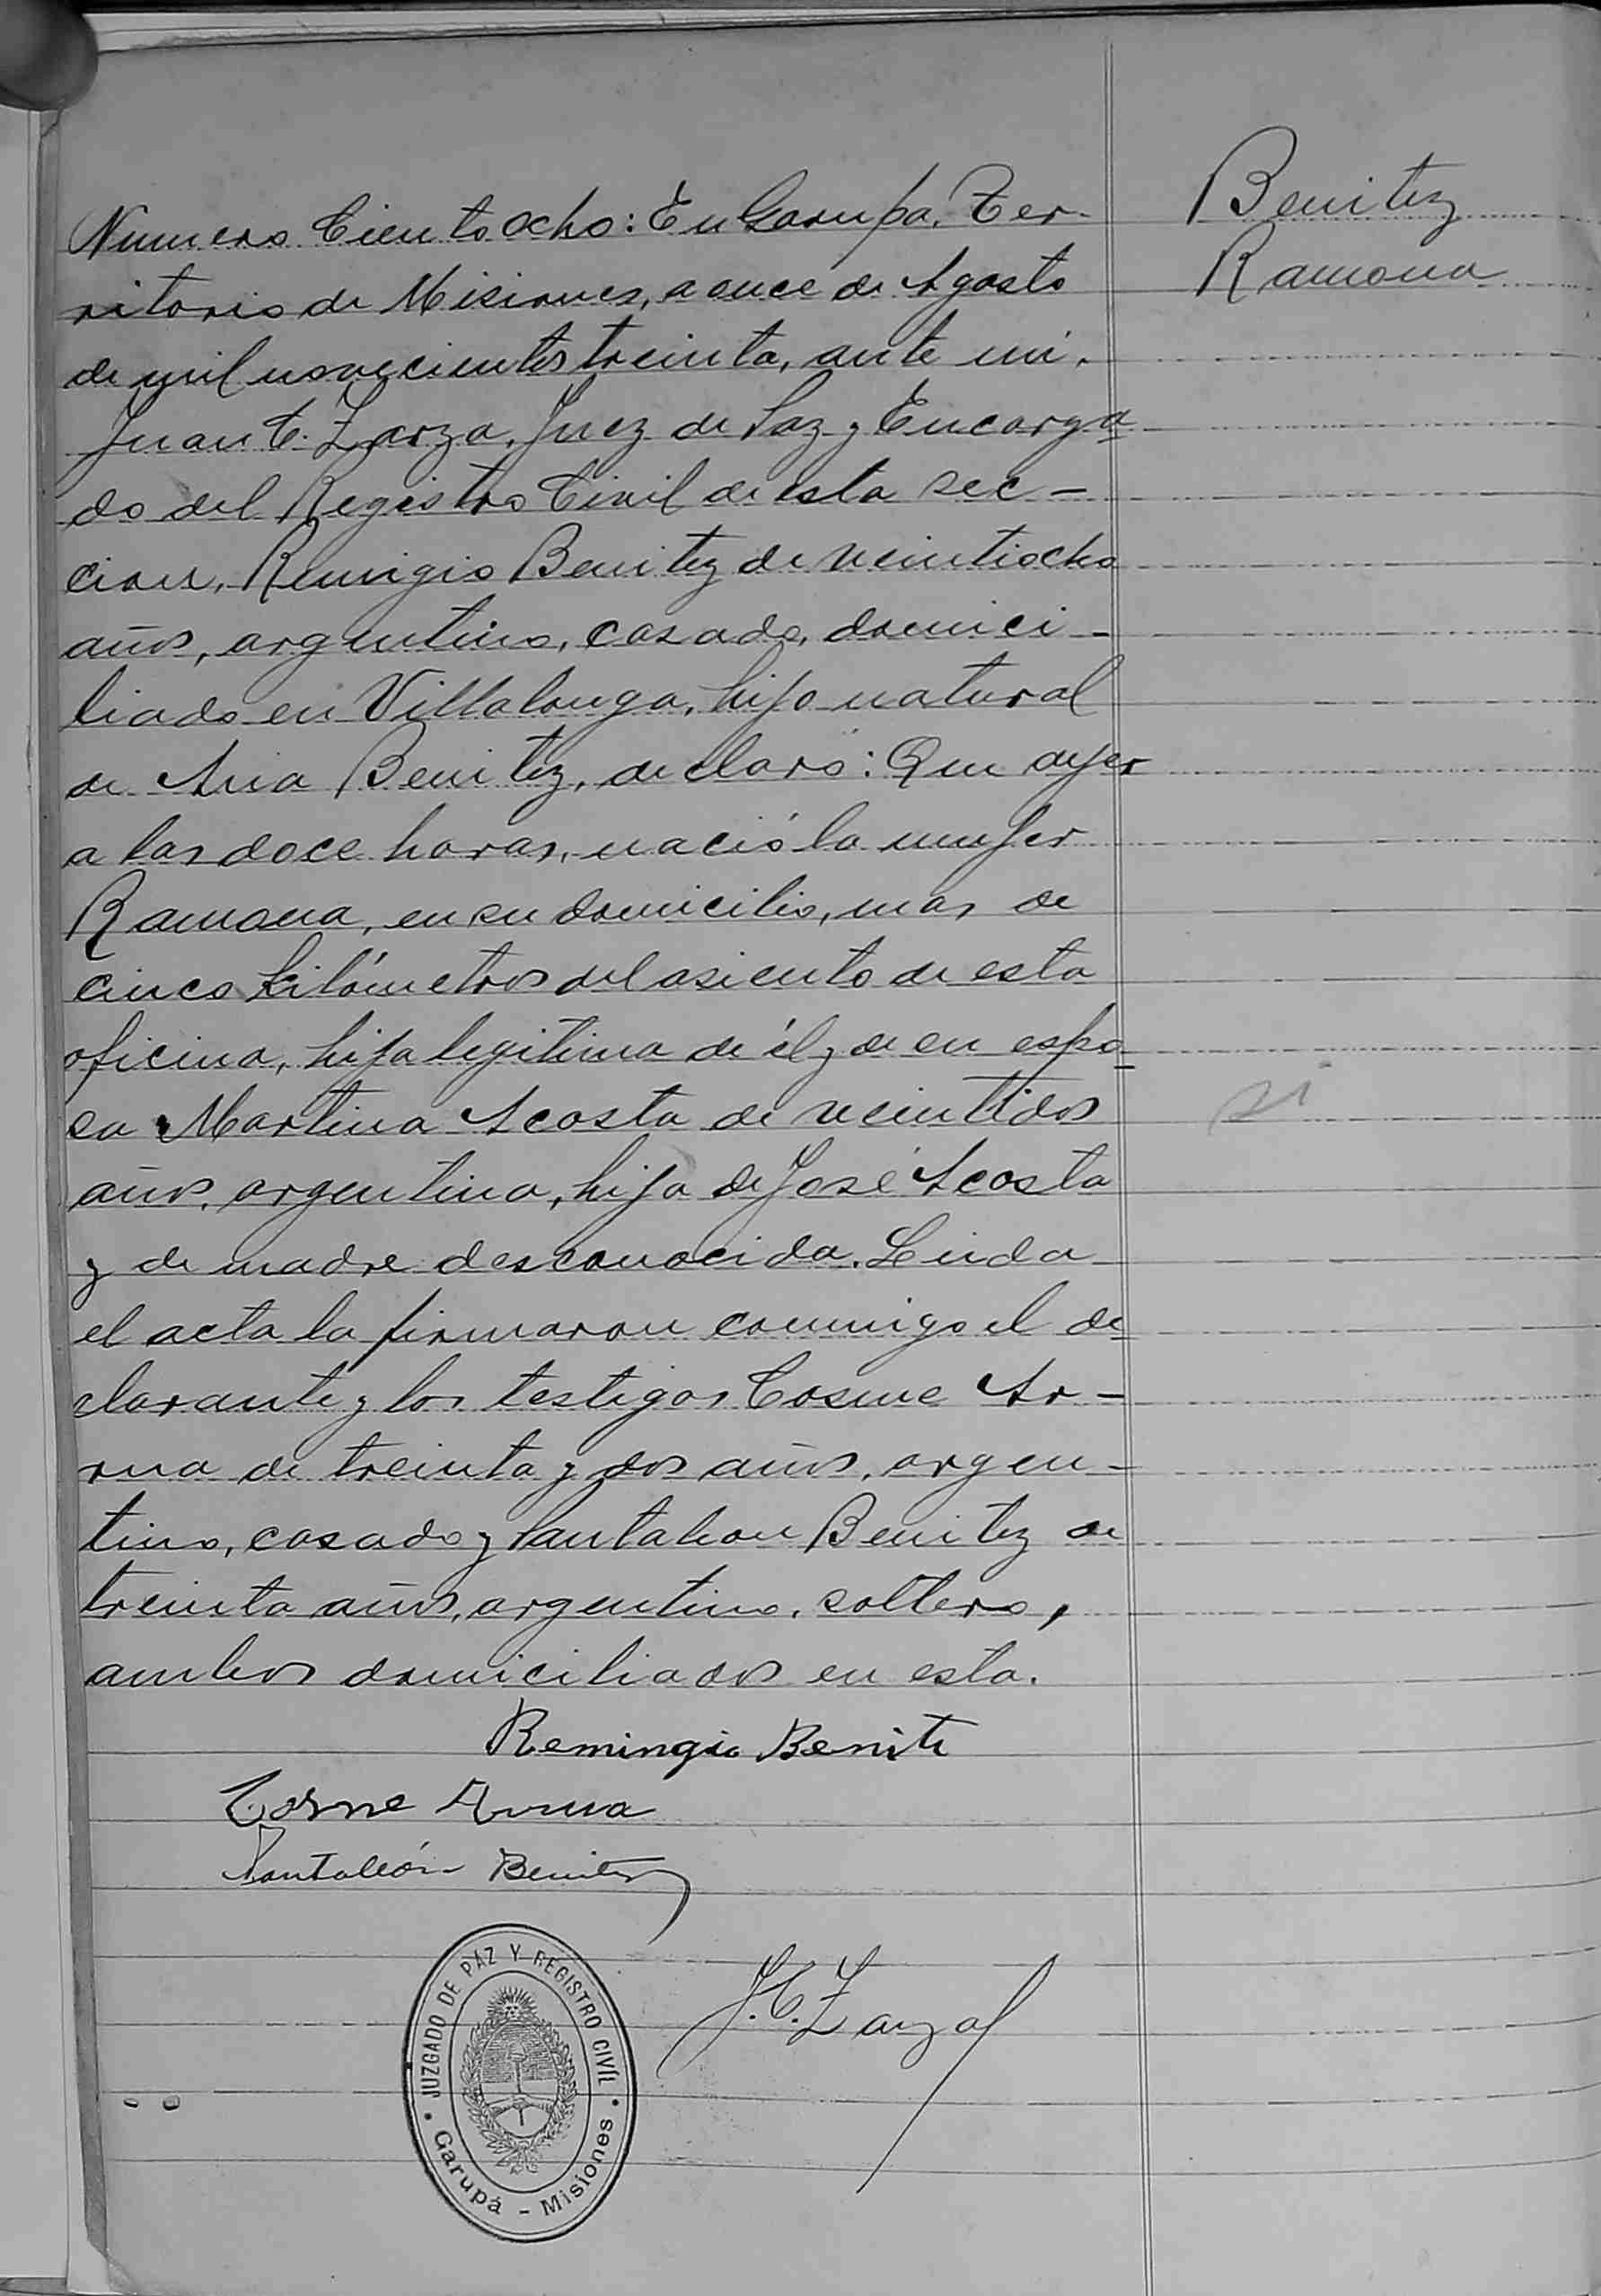 Numero Ciento ocho: En Garupa, Ter-
ritorio de Misiones, a once de Agosto
de mil novecientos treinta, ante mi,
Juan C. Zarza, Juez de Paz y Encarga
do del Registro Civil de esta sec-
cion, Remigio Benitez de veintiocho
años, argentino, casado, domici-
liado en Villalonga, hijo natural
de Ana Benitez, declaró: Que ayer
a las doce horas, nació la mujer
Ramona, en su domicilio, mas de
cinco kilómetros del asiento de esta
oficina, hija legitima de él y de su espo
sa Martina Acosta de veintidos
años, argentina, hija de José Acosta
y de madre desconocida. Leida
el acta la firmaron conmigo el de
clarante y los testigos Cosme Ar-
rua de treinta y dos años, argen-
tino, casado y Pantaleon Benitez de
treinta años, argentino, soltero,
ambos domiciliados en esta.
Remingio Benite
Cosme Arrua
Pantaleón Benitez
J. C. Zarza
JUZGADO DE PAZ Y REGISTRO CIVIL
Garupá - Misiones
Benitez
Ramona
si